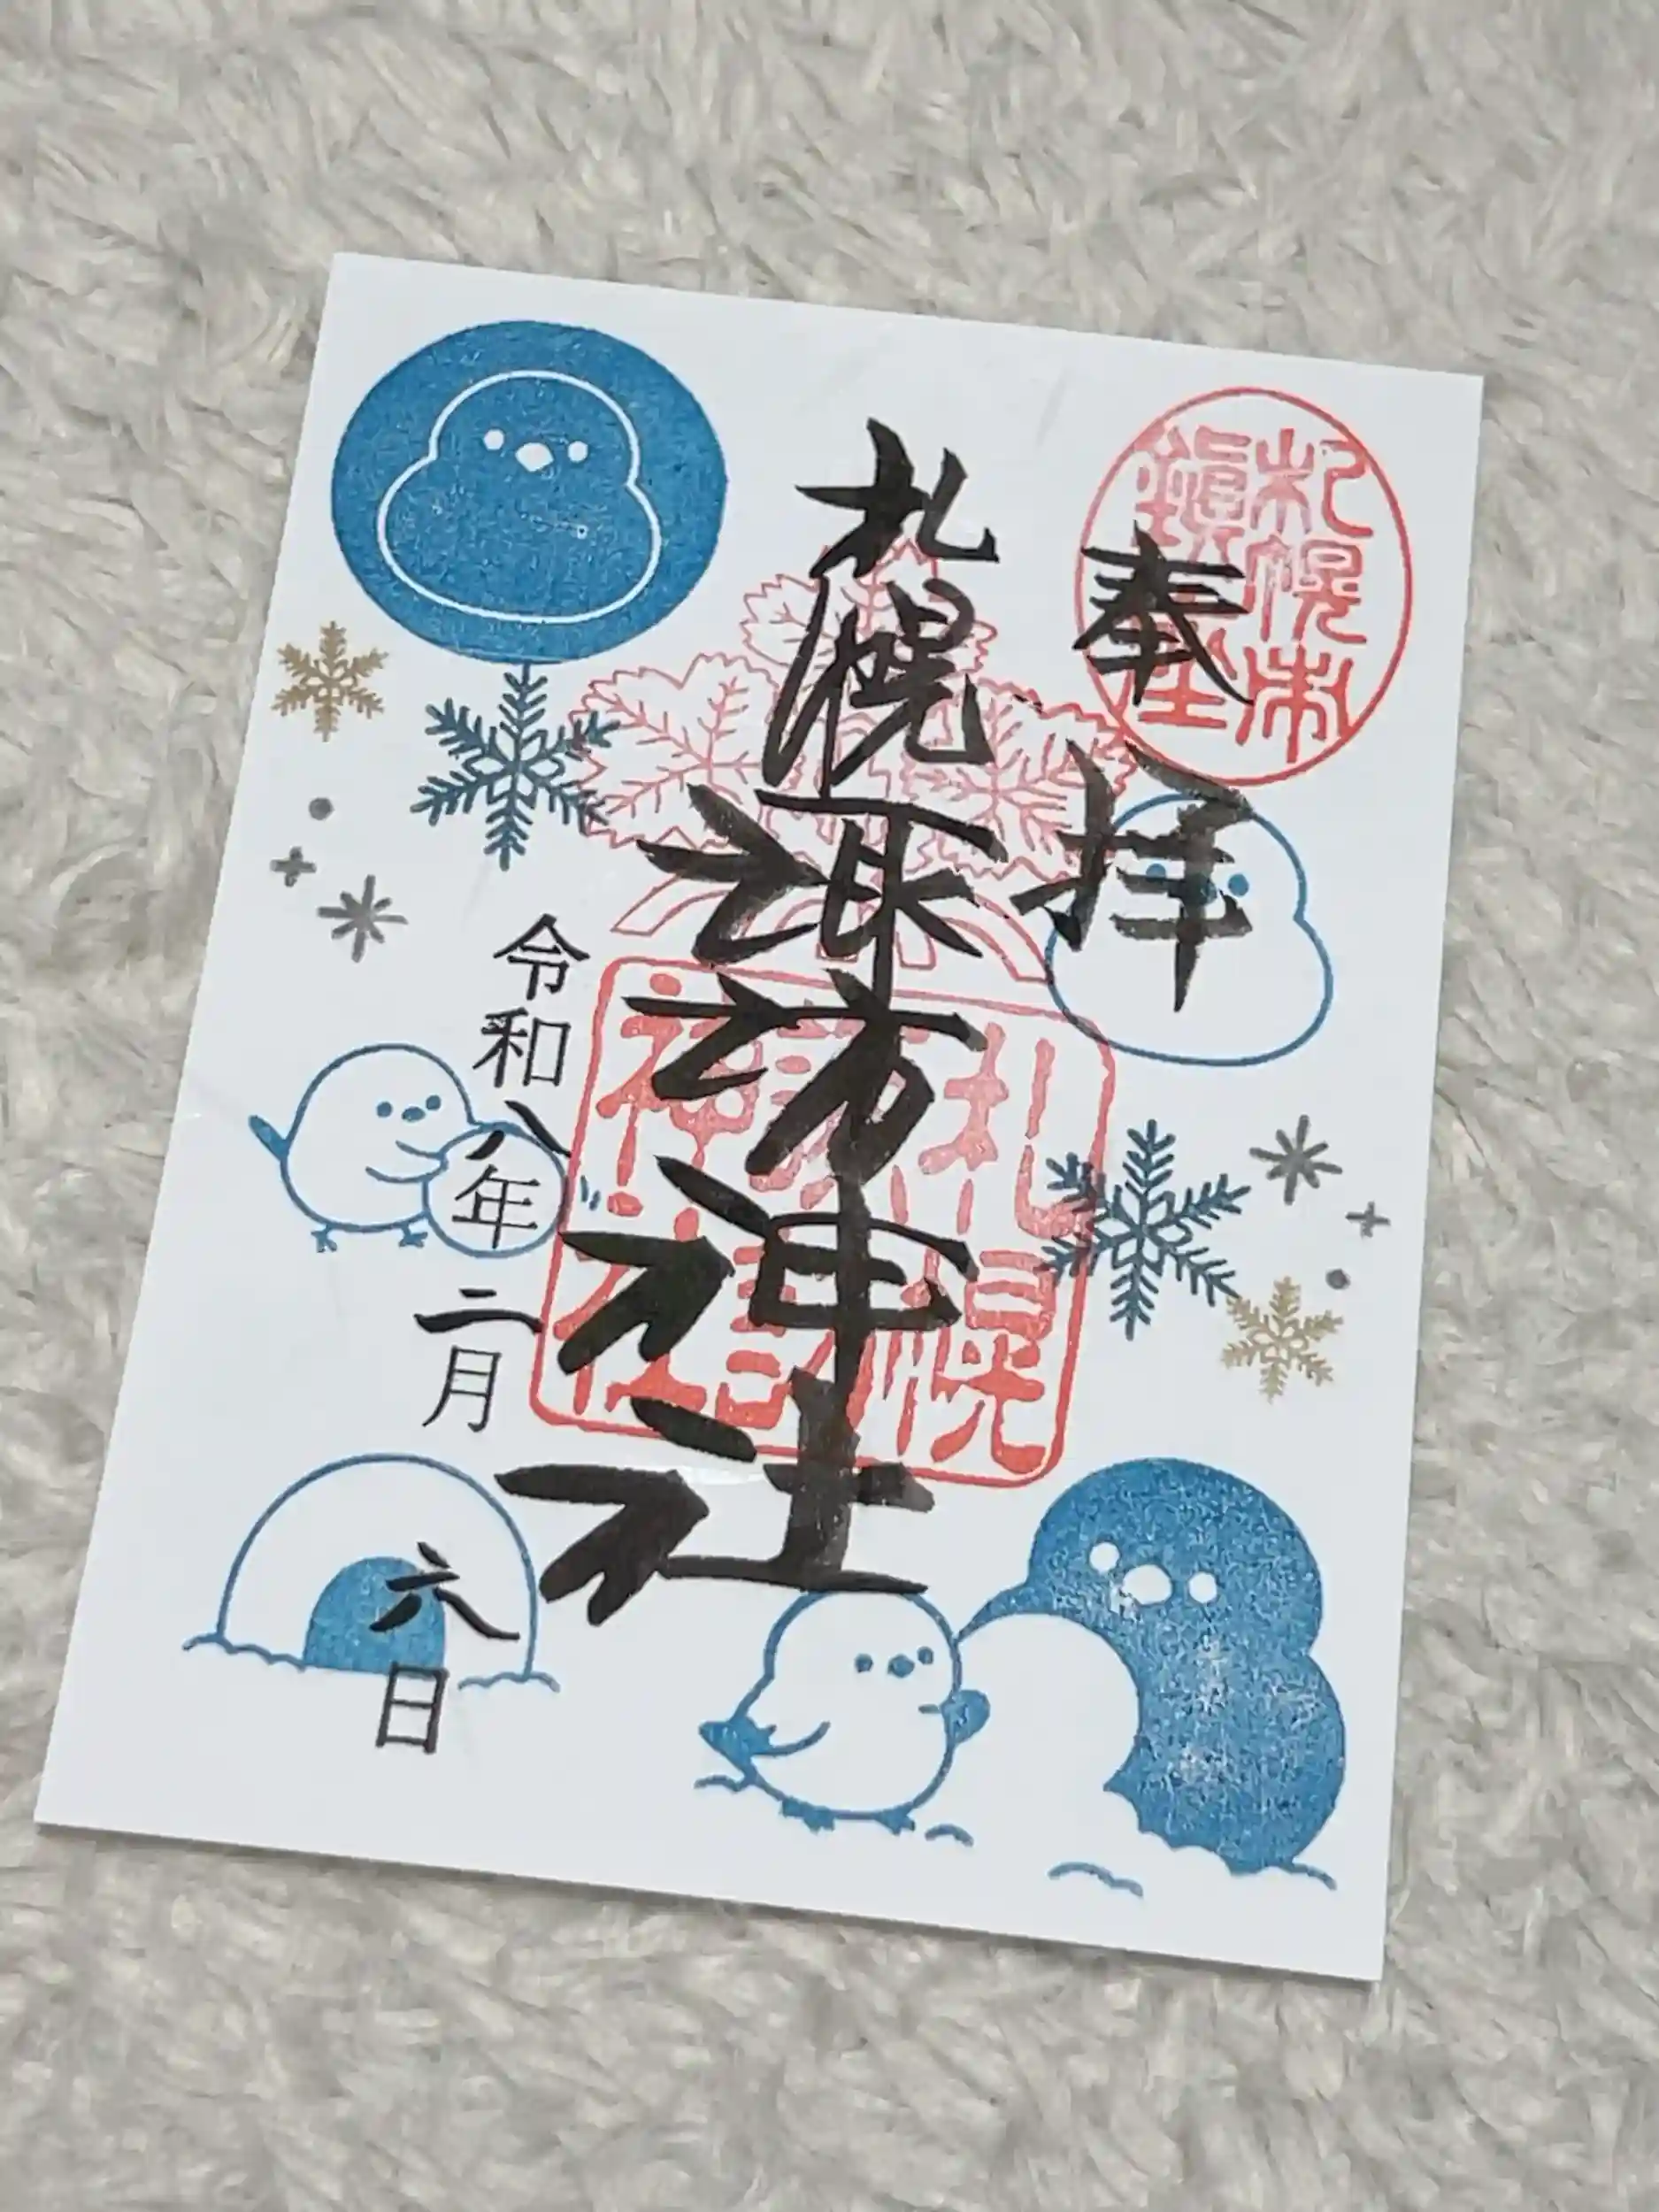 札幌市
鎭座
奉拝
札幌諏訪神社
札幌
諏訪
神社
令和八年二月六日